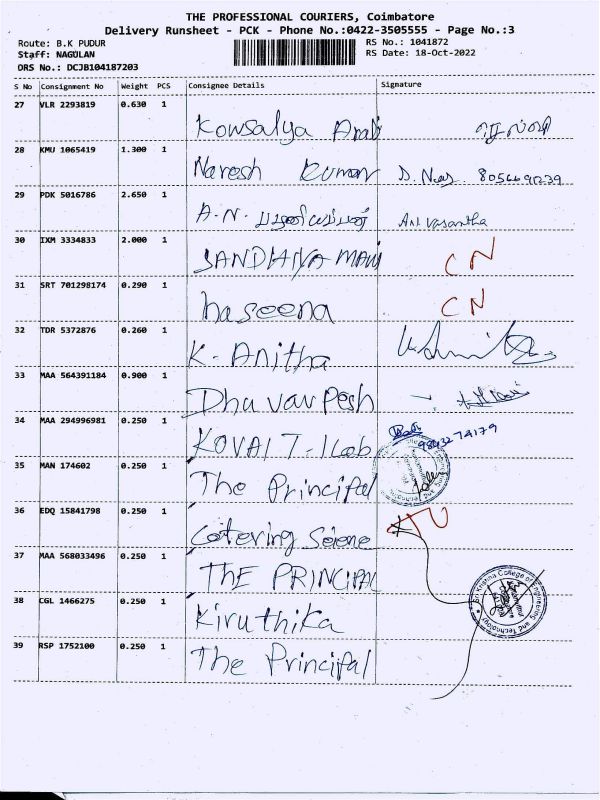 THE PROFESSIONAL COURIERS, Coimbatore
Delivery Runsheet - PCK - Phone No.:0422-3505555 - Page No.:3
Route: B.K PUDUR
RS No.: 1041872
Staff: NAGULAN
RS Date: 18-Oct-2022
DRS No.: DCJB104187203
S No Consignment No Weight PCS Consignee Details Signature
27 VLR 2293819 0.630 1 Kowsalya
28 KMU 1065419 1.300 1 Naresh Kumar
29 PDK 5016786 2.650 1 A.N. Vasantha
30 IXM 3334833 2.000 1 SANDHIYA MANI CN
31 SRT 701298174 0.290 1 haseena CN
32 TDR 5372876 0.260 1 K. Anitha
33 MAA 564391184 0.900 1
34 MAA 294996981 0.250 1 KOVAI 98432 74179
35 MAN 174602 0.250 1 The Principal
36 EDQ 15841798 0.250 1 Catering
37 MAA 568033496 0.250 1 THE PRINCIPAL
Sri Krishna College of Engineering and Technology
38 CGL 1466275 0.250 1 Kiruthika
39 RSP 1752100 0.250 1 The Principal